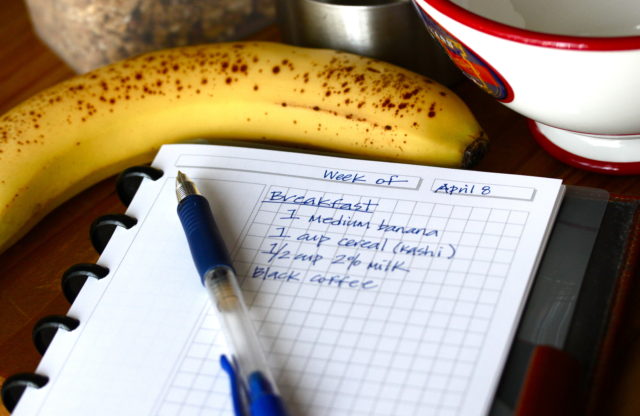 Week of April 8
Breakfast
1 medium banana
1 cup cereal (kashi)
1/2 cup 2% milk
Black coffee